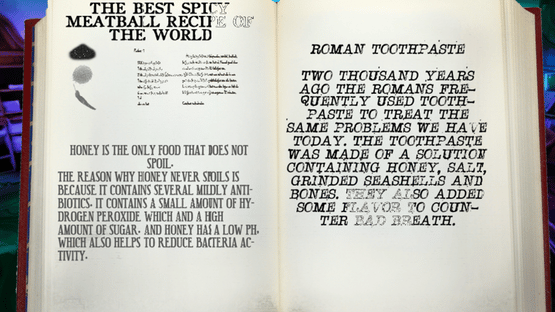 THE BEST SPICY
MEATBALL RECIPE OF
THE WORLD
HONEY IS THE ONLY FOOD THAT DOES NOT
SPOIL.
THE REASON WHY HONEY NEVER SPOILS IS
BECAUSE IT CONTAINS SEVERAL MILDLY ANTI-
BIOTICS. IT CONTAINS A SMALL AMOUNT OF HY-
DROGEN PEROXIDE, WHICH AND A HIGH
AMOUNT OF SUGAR. AND HONEY HAS A LOW PH,
WHICH ALSO HELPS TO REDUCE BACTERIA AC-
TIVITY.
ROMAN TOOTHPASTE
TWO THOUSAND YEARS
AGO THE ROMANS FRE-
QUENTLY USED TOOTH-
PASTE TO TREAT THE
SAME PROBLEMS WE HAVE
TODAY. THE TOOTHPASTE
WAS MADE OF A SOLUTION
CONTAINING HONEY, SALT,
GRINDED SEASHELLS AND
BONES. THEY ALSO ADDED
SOME FLAVOR TO COUN-
TER BAD BREATH.